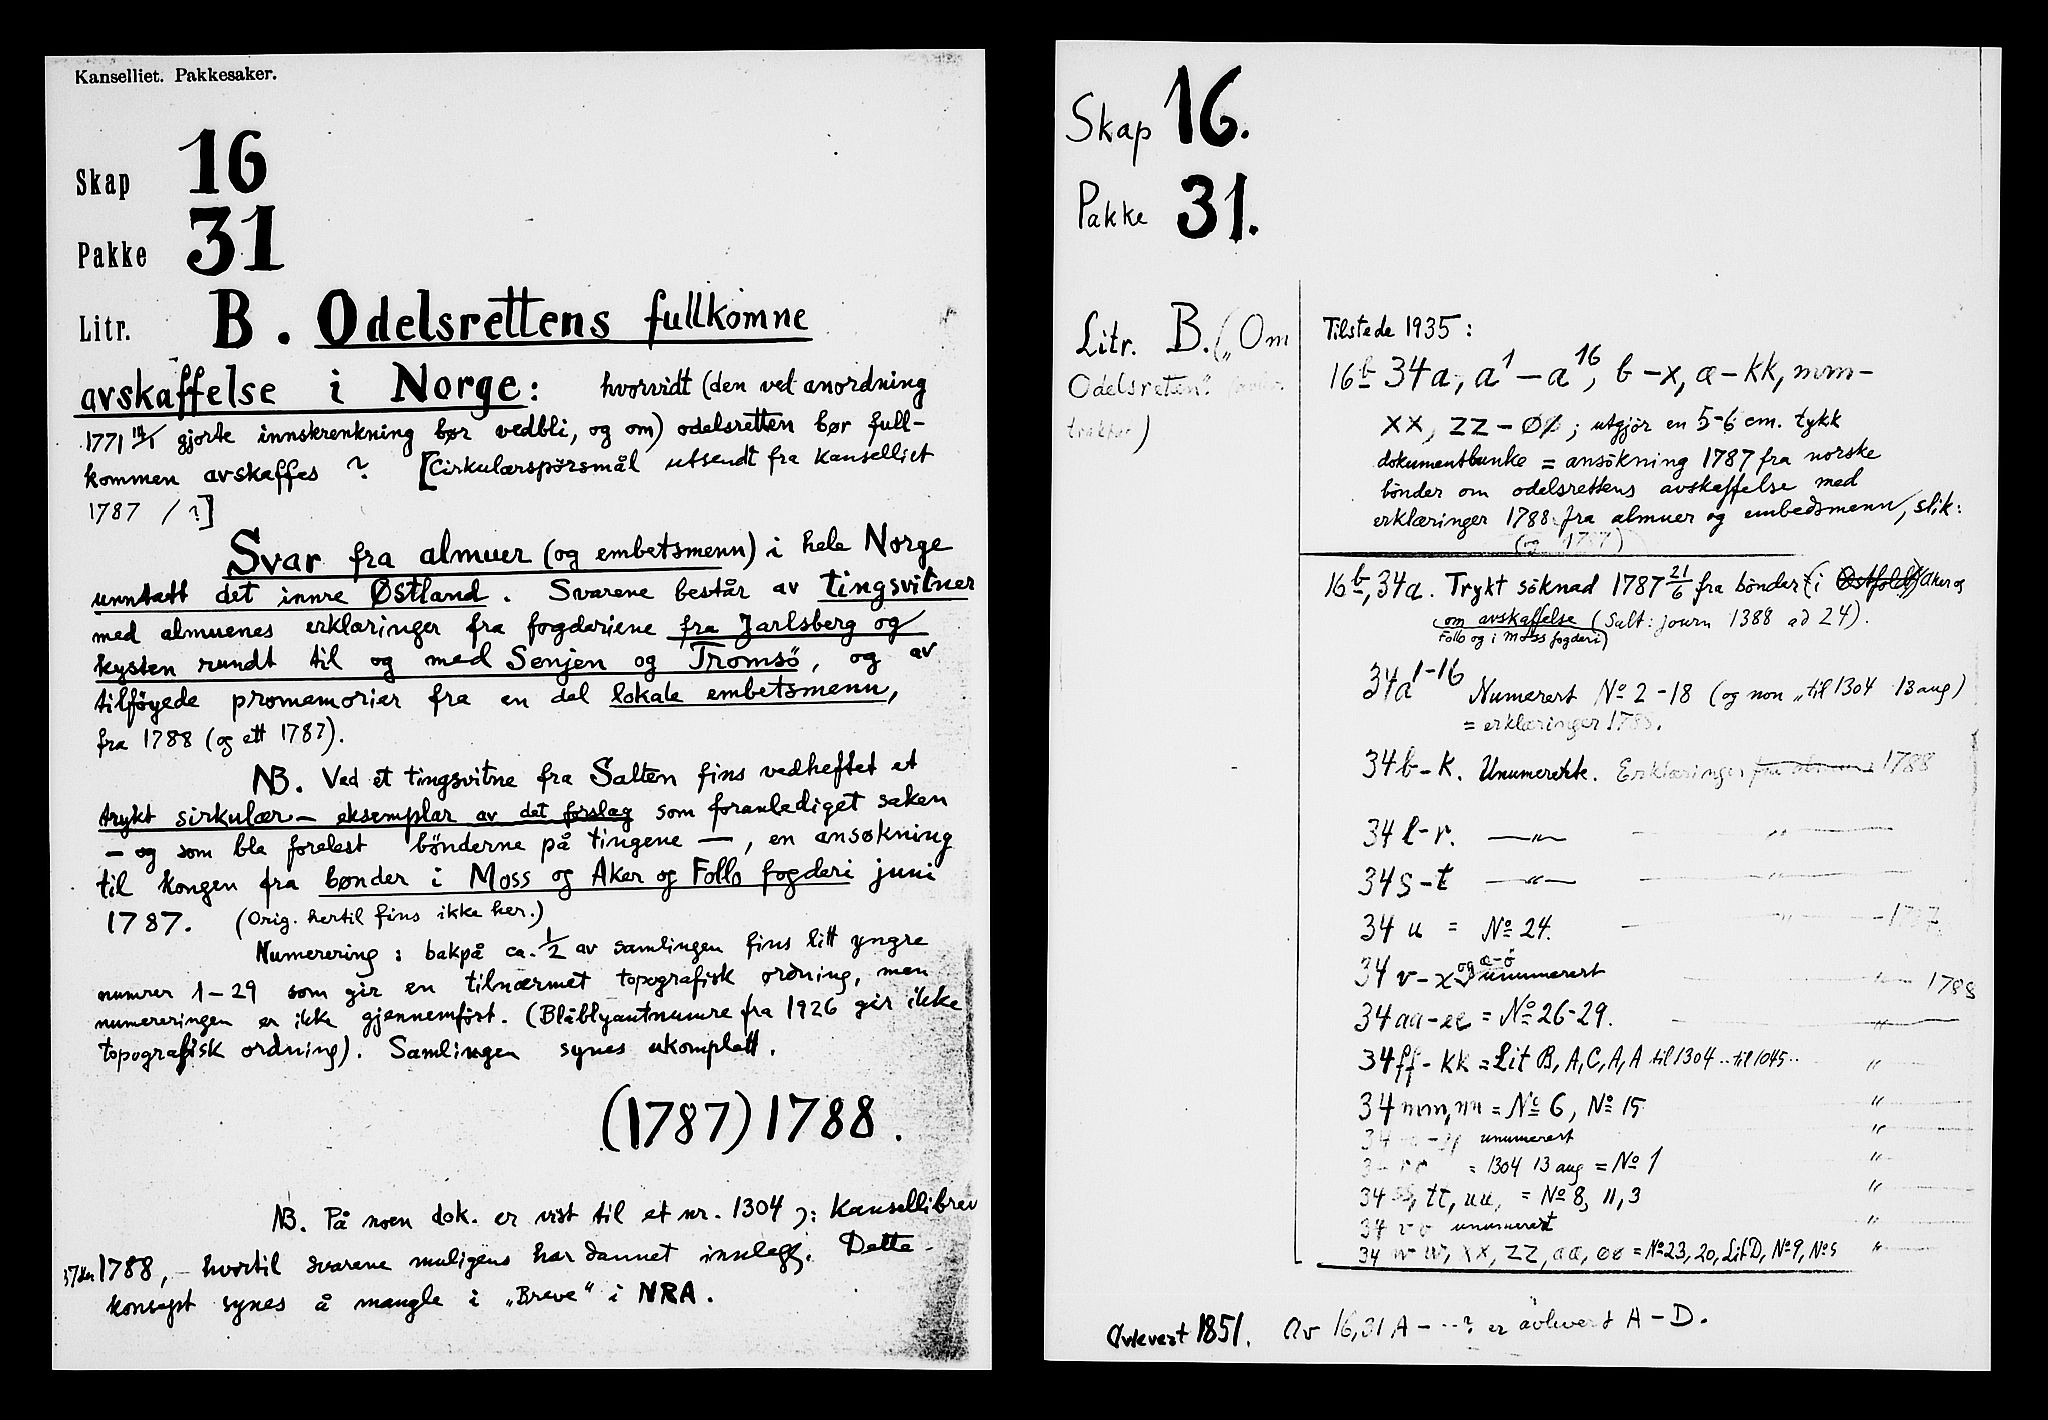 Kanselliet. Pakkesaker.
Skap 16
Pakke 31
Litr. B. Odelsrettens fullkomne
avskaffelse i Norge: hvorvidt (den ved anordning
1771 14/1 gjorte innskrenkning bør vedbli, og om) odelsretten bør full-
kommen avskaffes ? [Cirkulærspörsmål utsendt fra Kanselliet
1787 / ?]
Svar fra almuer (og embetsmenn) i hele Norge
unntatt det innre Østland. Svarene består av tingsvitner
med almuenes erklæringer fra fogderiene fra Jarlsberg og
kysten rundt til og med Senjen og Tromsö, og av
tilföyede promemorier fra en del lokale embetsmenn,
fra 1788 (og ett 1787).
NB. Ved et tingsvitne fra Salten fins vedheftet et
trykt sirkulær- eksemplar av det forslag som foranlediget saken
- og som ble forelest bönderne på tingene -, en ansøkning
til kongen fra bønder i Moss og Aker og Follo fogderi juni
1787. (Orig. hertil fins ikke her.)
Numerering: bakpå ca. 1/2 av samlingen fins litt yngre
numrer 1-29 som gir en tilnærmet topografisk ordning, men
numereringen er ikke gjennemfört. (Blåblyantnumre fra 1926 gir ikke
topografisk ordning). Samlingen synes ukomplett.
(1787) 1788.
NB. På noen dok. er vist til et nr. 1304 ɔ: Kansellibrev
1788, - hvortil svarene muligens har dannet innlegg. Dette
konsept synes å mangle i „Breve“ i NRA.
Skap 16.
Pakke 31.
Litr. B. („Om
Odelsretten“.
)
Tilstede 1935:
16b 34a, a1 - a16, b - x, æ - kk, mm-
xx, zz - øø; utgjör en 5-6 cm. tykk
dokumentbunke = ansökning 1787 fra norske
bönder om odelsrettens avskaffelse med
erklæringer 1788 fra almuer og embedsmenn, slik:
(og 1787)
16b, 34a. Trykt söknad 1787 21/6 fra bönder (i Østfold) Aker og
om avskaffelse (Salt: journ 1388 ad 24).
Follo og i Moss fogderi)
34a1-16 Numerert No 2-18 (og non „til 1304 13 aug)
= erklæringer 1788.
34b-k. Unumererte. Erklæringer fra almuer 1788
34 l-r. -„- „
34 s-t -„- „
34 u = No 24. „ - 1787.
34 v-x og æ-ö unumerert „ 1788
34 aa-ee = No 26-29. „
34 ff-kk = Lit B, A, C, A, A til 1304 .. til 1045.. „
34 mm, nn = No 6, No 15 „
34 unumerert „
= 1304 13 aug = No 1 „
34 ss, tt, uu, = No 8, 11, 3 „
34 unumerert „
34 w, xx, zz, ææ, øø = No 23, 20, Lit D, No 9, No 5 „
Avlevert 1851. Av 16,31 A - --? er avlevert A-D.